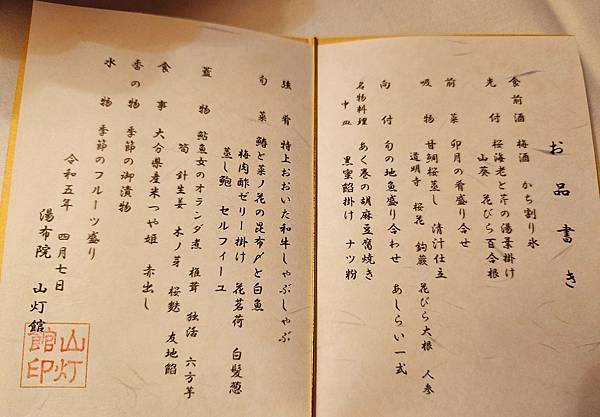 お品書き
食前酒 梅酒 かち割り氷
先付 桜海老と芹の湯葉掛け
山葵 花びら百合根
前菜 卯月の肴盛り合せ
吸物 甘鯛桜蒸し 清汁仕立
道明寺 桜花 鈎蕨 花びら大根 人参
向付 旬の地魚盛り合わせ あしらい一式
名物料理 あく巻の胡麻豆腐焼き
中皿 黒蜜餡掛け ナツ粉
強肴 特上おおいた和牛しゃぶしゃぶ
旬菜 鰆と菜ノ花の昆布〆と白魚
梅肉酢ゼリー掛け 花茗荷 白髪葱
蒸し鮑 セルフィーユ
蓋物 鮎魚女のオランダ煮 椎茸 独活 六方芋
筍 針生姜 木ノ芽 桜麩 友地餡
食事 大分県産米つや姫 赤出し
香の物 季節の御漬物
水物 季節のフルーツ盛り
令和五年 四月七日
湯布院 山灯館
山灯
館印